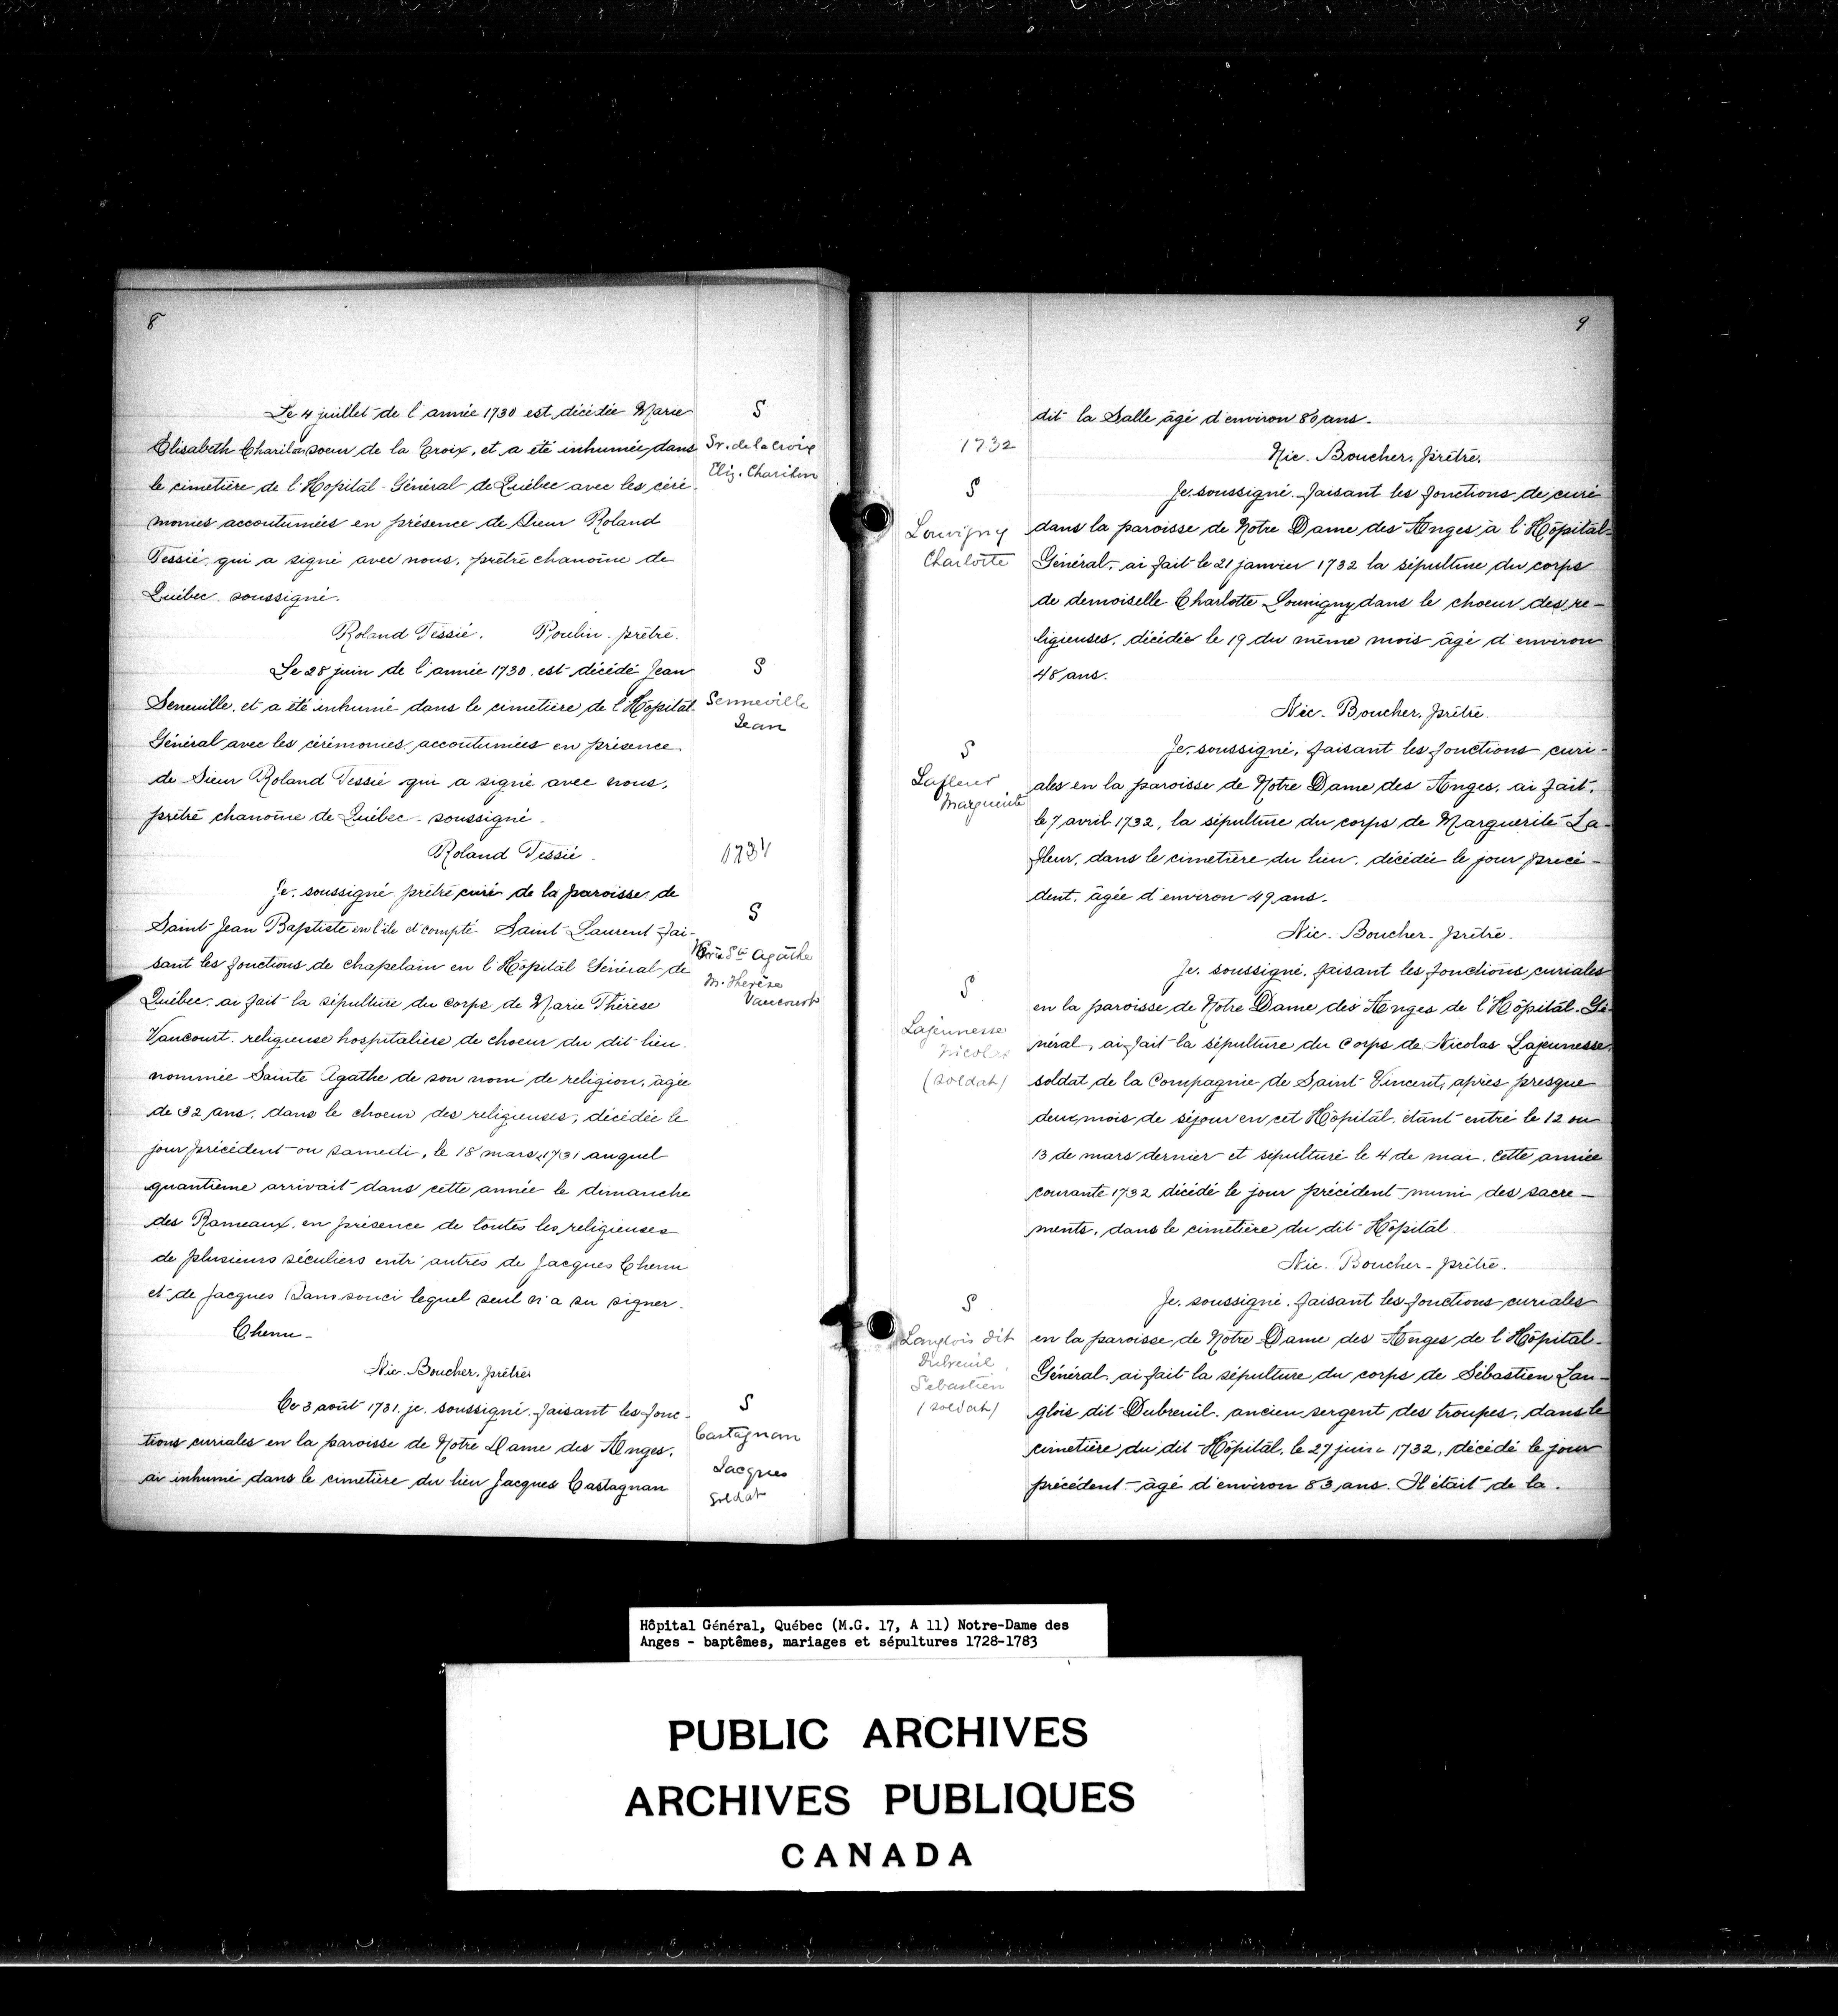 8
Le 4 juillet de l'année 1730 est décédée Marie
Elisabeth Charilon soeur de la Croix, et a été inhumée dans
le cimetière de l'Hopital-Général de Québec avec les céré-
monies accoutumées en présence de Sieur Roland
Tessié, qui a signé avec nous, prêtre chanoine de
Québec soussigné.
Roland Tessié. Poulin prêtre.
Le 28 juin de l'année 1730, est décédé Jean
Seneville, et a été inhumé dans le cimetière de l'Hopital-
Général avec les cérémonies accoutumées en présence
de Sieur Roland Tessié qui a signé avec nous,
prêtre chanoine de Québec soussigné.
Roland Tessié.
Je, soussigné prêtre curé de la paroisse de
Saint-Jean Baptiste en l'ile et compté Saint-Laurent fai-
sant les fonctions de chapelain en l'Hôpital Général de
Québec, ai fait la sépulture du corps de Marie Thérèse
Vancourt, religieuse hospitalière de choeur du dit lieu
nommée Sainte Agathe de son nom de religion, âgée
de 32 ans, dans le choeur des religieuses, décédée le
jour précédent ou samedi, le 18 mars 1731 auquel
quantième arrivait dans cette année le dimanche
des Rameaux, en présence de toutes les religieuses
de plusieurs séculiers entr'autres de Jacques Chenu
et de Jacques Sanssouci lequel seul n'a su signer.
Chenu-
Nic. Boucher, prêtre
Ce 3 août 1731, je, soussigné, faisant les fonc-
tions curiales en la paroisse de Notre Dame des Anges,
ai inhumé dans le cimetière du lieu Jacques Castagnan
S
Sr. de la Croix
Eliz. Charilon
S
Senneville
Jean
1731
S
Ste Agathe
M. Thérèse
Vancourt
S
Castagnan
Jacques
Soldat
9
dit la Salle âgé d'environ 80 ans.
Nic. Boucher, prêtre.
Je soussigné, faisant les fonctions de curé
dans la paroisse de Notre Dame des Anges à l'Hôpital-
Général, ai fait le 21 janvier 1732 la sépulture du corps
de demoiselle Charlotte Louvigny dans le choeur des re-
ligieuses, décédée le 19 du même mois âgé d'environ
48 ans.
Nic. Boucher, prêtre.
Je, soussigné, faisant les fonctions curi-
ales en la paroisse de Notre Dame des Anges, ai fait,
le 7 avril 1732, la sépulture du corps de Marguerite La-
fleur, dans le cimetière du lieu, décédée le jour précé-
dent, âgée d'environ 49 ans.
Nic. Boucher, prêtre.
Je, soussigné, faisant les fonctions curiales
en la paroisse de Notre Dame des Anges de l'Hôpital-Gé-
néral, ai fait la sépulture du Corps de Nicolas Lajeunesse,
soldat de la Compagnie de Saint Vincent, après presque
deux mois de séjour en cet Hôpital, étant entré le 12 ou
13 de mars dernier et sépulturé le 4 de mai, cette année
courante 1732 décédé le jour précédent muni des sacre-
ments, dans le cimetière du dit Hôpital
Nic. Boucher, prêtre.
Je, soussigné, faisant les fonctions curiales
en la paroisse de Notre Dame des Anges de l'Hôpital-
Général, ai fait la sépulture du corps de Sébastien Lan-
glois dit Dubreuil, ancien sergent des troupes, dans le
cimetière du dit Hôpital, le 27 juin 1732, décédé le jour
précédent âgé d'environ 83 ans. Il était de la
1732
S
Louvigny
Charlotte
S
Lafleur
Marguerite
S
Lajeunesse
Nicolas
(soldat)
S
Langlois dit
Dubreuil,
Sébastien
(soldat)
Hôpital Général, Québec (M.G. 17, A 11) Notre-Dame des
Anges - baptêmes, mariages et sépultures 1728-1783
PUBLIC ARCHIVES
ARCHIVES PUBLIQUES
CANADA